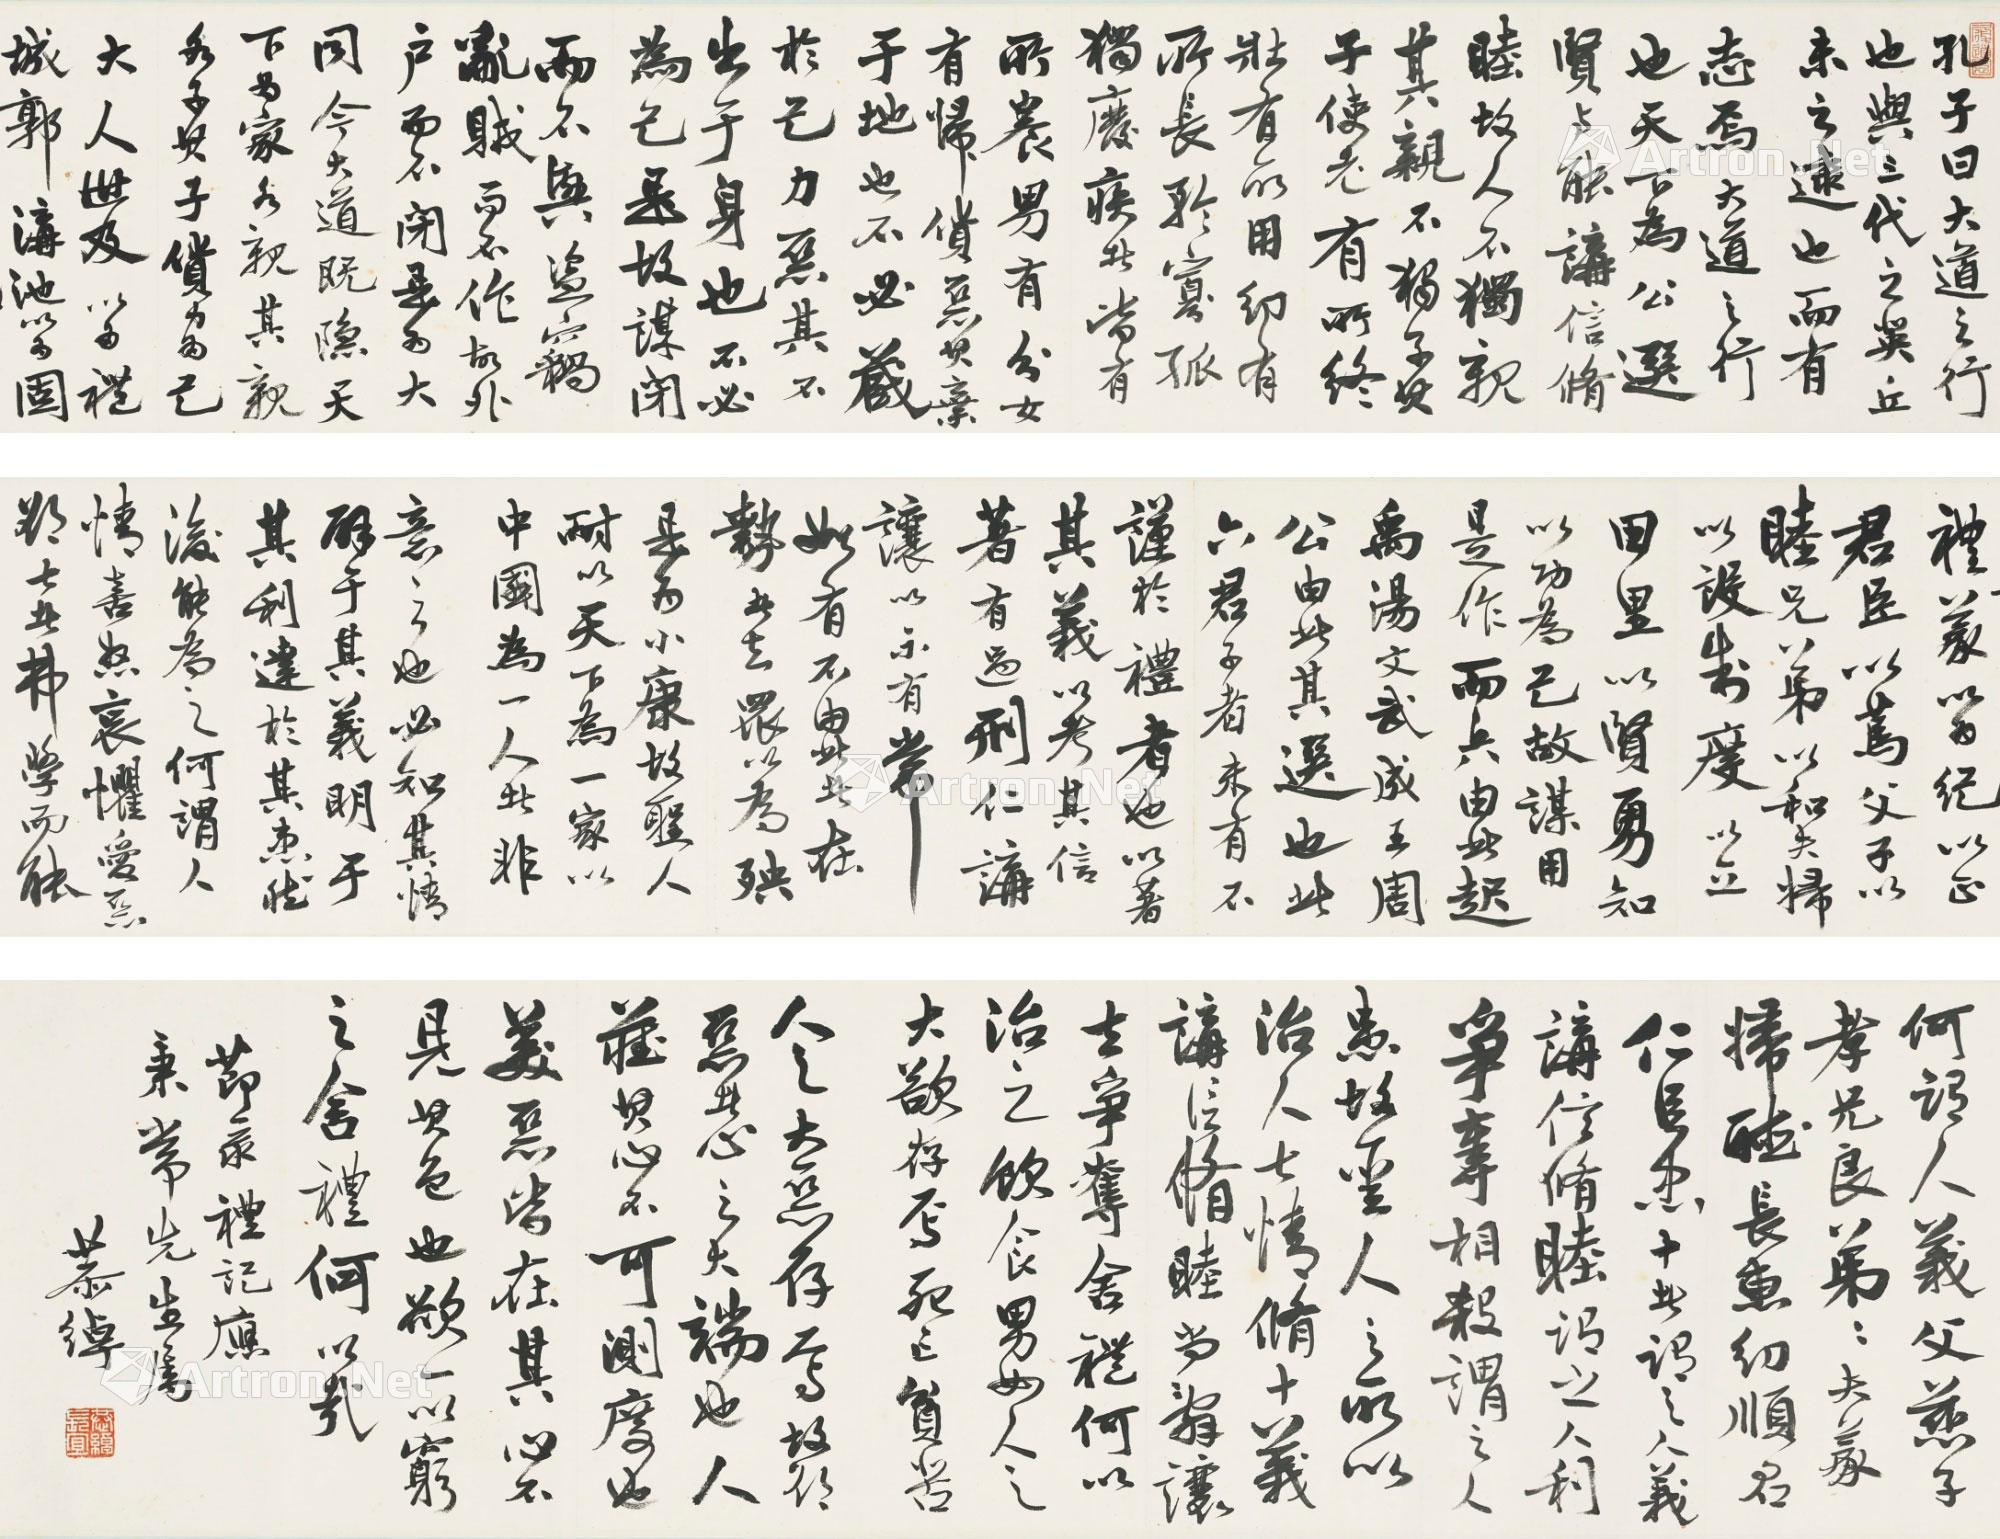 孔子曰大道之行
也與三代之英丘
未之逮也而有
志焉大道之行
也天下為公選
賢與能講信脩
睦故人不獨親
其親不獨子其
子使老有所終
壯有所用幼有
所長矜寡孤
獨廢疾者皆有
所養男有分女
有歸貨惡其棄
于地也不必藏
於己力惡其不
出于身也不必
為己是故謀閉
而不興盜竊
亂賊而不作故外
户而不閉是為大
同今大道既隐天
下為家各親其親
各子其子貨力為己
大人世及以為禮
城郭溝池以為固
禮義以為紀以正
君臣以篤父子以
睦兄弟以和夫婦
以設制度以立
田里以賢勇知
以功為己故謀用
是作而兵由此起
禹湯文武成王周
公由此其選也此
六君子者未有不
謹於禮者也以著
其義以考其信
著有過刑仁講
讓以示有常
如有不由此者在
勢者去眾以為殃
是為小康故聖人
耐以天下為一家以
中國為一人者非
意之也必知其情
辟于其義明于
其利達於其患然
後能為之何謂人
情喜怒哀懼愛惡
欲七者弗學而能
何謂人義父慈子
孝兄良弟弟夫義
婦聽長惠幼順君
仁臣忠十者謂之人義
講信脩睦謂之人利
爭奪相殺謂之人
患故聖人之所以
治人七情脩十義
講信脩睦尚辭讓
去爭奪舍禮何以
治之飲食男女人之
大欲存焉死亡貧苦
人之大惡存焉故欲
惡者心之大端也人
藏其心不可測度也
美惡皆在其心不
見其色也欲一以窮
之舍禮何以哉
節录禮記應
秉常先生属
慕绰
Artron.Net
Artron.Net
Artron.Net